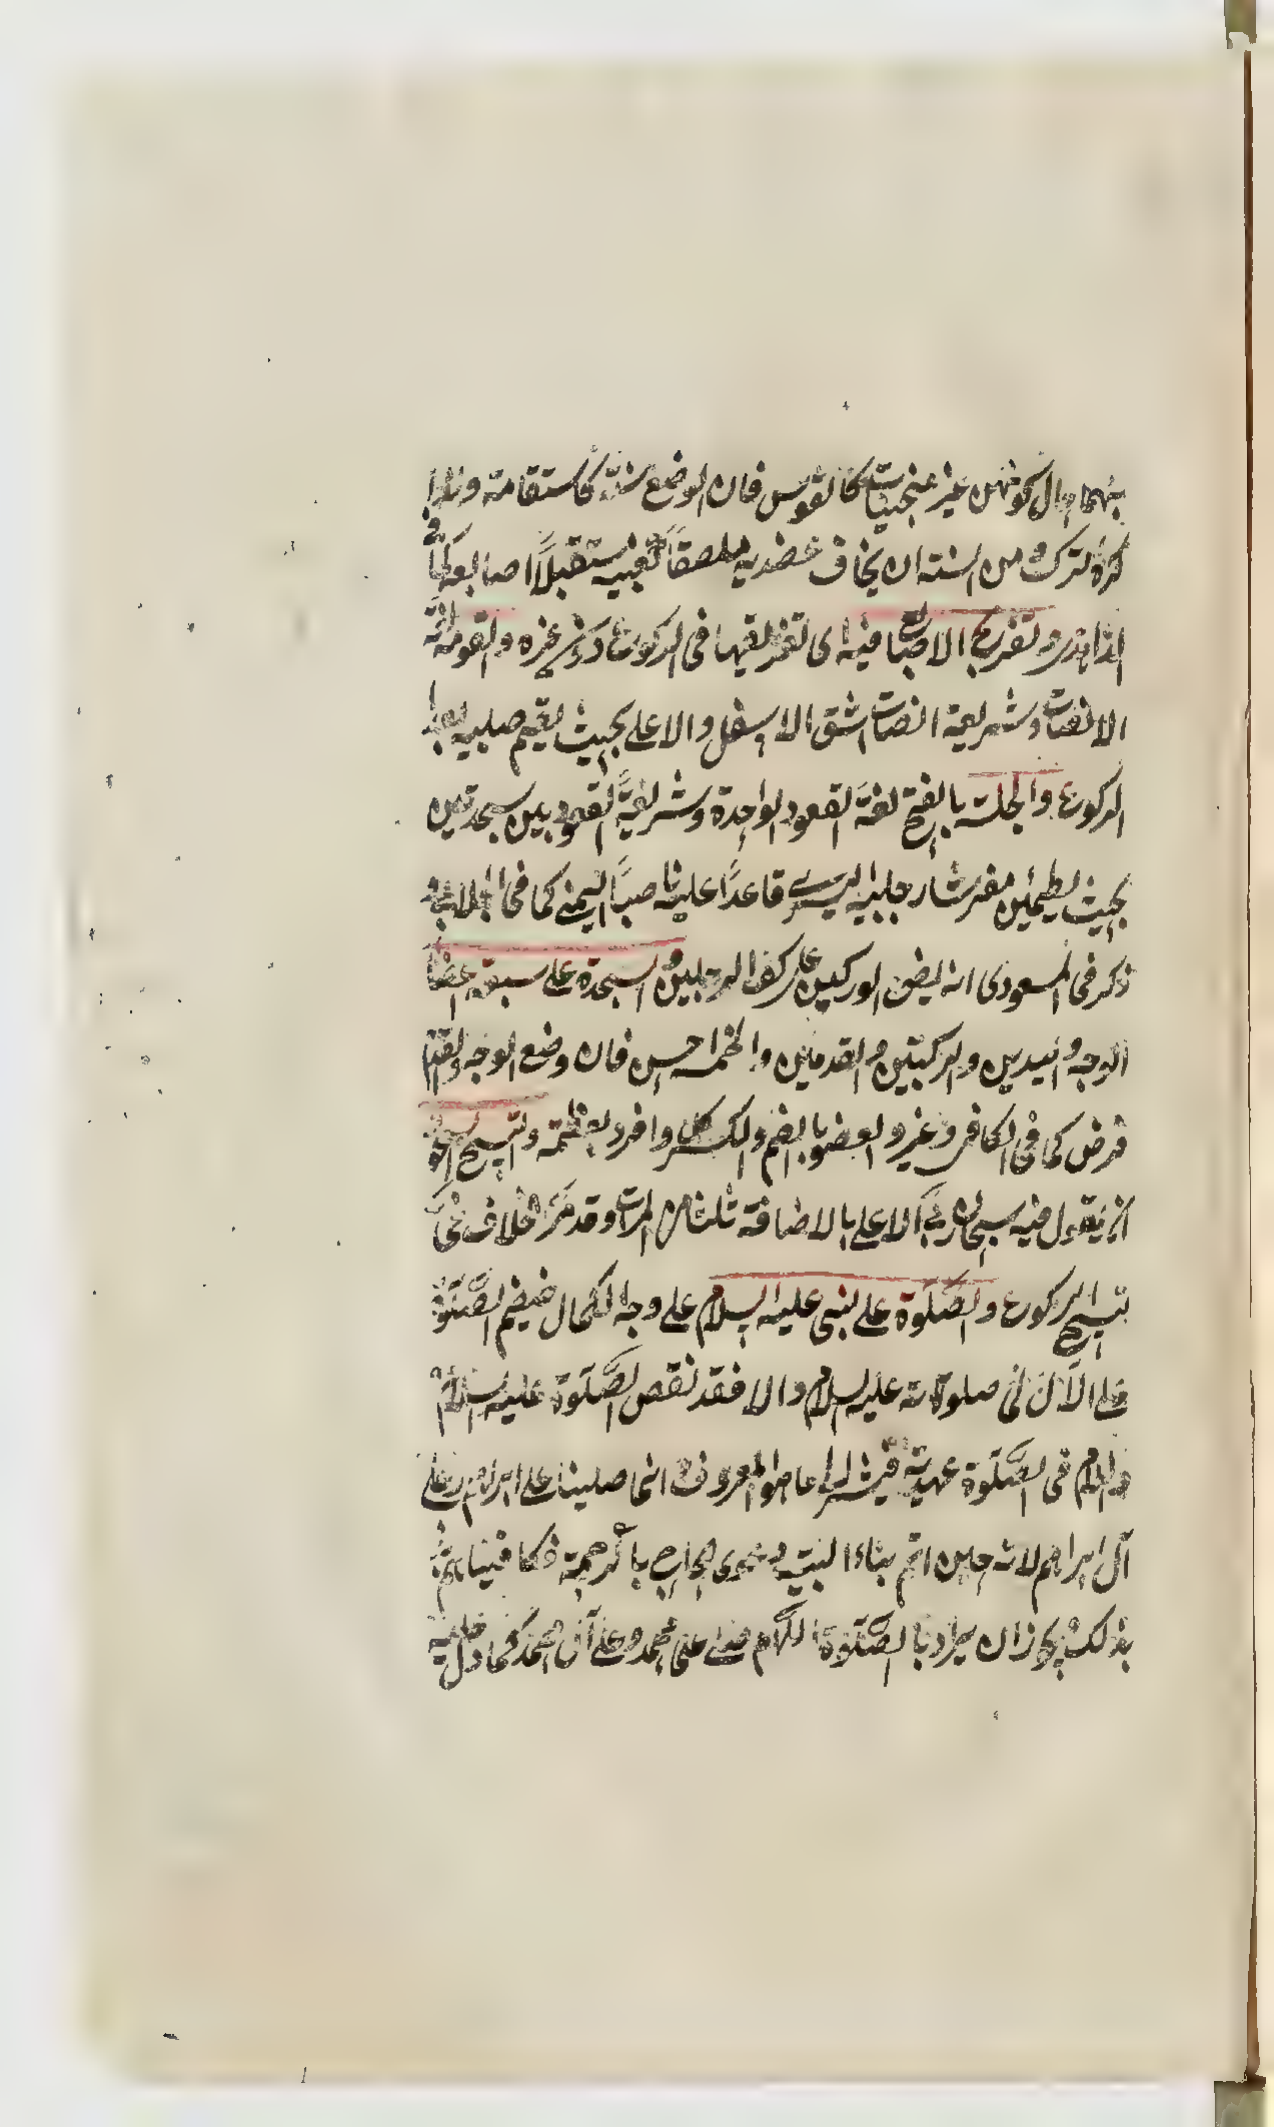 بينهما حال كونهن غير منحنيات كالقوس فان الوضع سنة كاستقامة ولذا
كره تركه ومن السنة ان يجافى عضديه ملصقا كعبيه مستقبلا اصابعه كما فى
الزاهدى وتفريج الاصابع فيه اى تفريقها فى الركوع دون غيره والقومة لغة
الانتصاب وشريعة انتصاب الشق الاسفل والاعلى بحيث يقيم صلبه بعد
الركوع والجلسة بالفتح لغة القعود الواحدة وشريعة القعود بين سجدتين
بحيث يطمئن مفترشا رجليه اليسرى قاعدا عليها ناصبا اليمنى كما فى الجلابى و
ذكر فى المسعودى انه يضع الوركين على كف الرجلين والسجدة على سبعة اعضاء
الوجه واليدين والركبتين والقدمين والخمسة احسن فان وضع الوجه والقدم
فرض كما فى الكافى وغيره والعضو بالضم والكسر كل وافر بعظمه وتسبيح السجود
انه يقول فيه سبحان ربى الاعلى بالاضافة ثلثا من المرات وقد مر الخلاف فى
تسبيح الركوع والصلوة على النبى عليه السلام على وجه الكمال فيضم الصلوة
على الآل فى صلوته عليه السلام والا فقد نقص الصلوة عليه السلام
واللام فى الصلوة عهدية فيشير الى ما هو المعروف انما صلينا على ابراهيم وعلى
آل ابراهيم لانه حين اتم بناء البيت دعوى الحاج بالرحمة فكافيناهم
بذلك ويجوز ان يراد بالصلوة اللهم صل على محمد وعلى آل محمد كما دل عليه